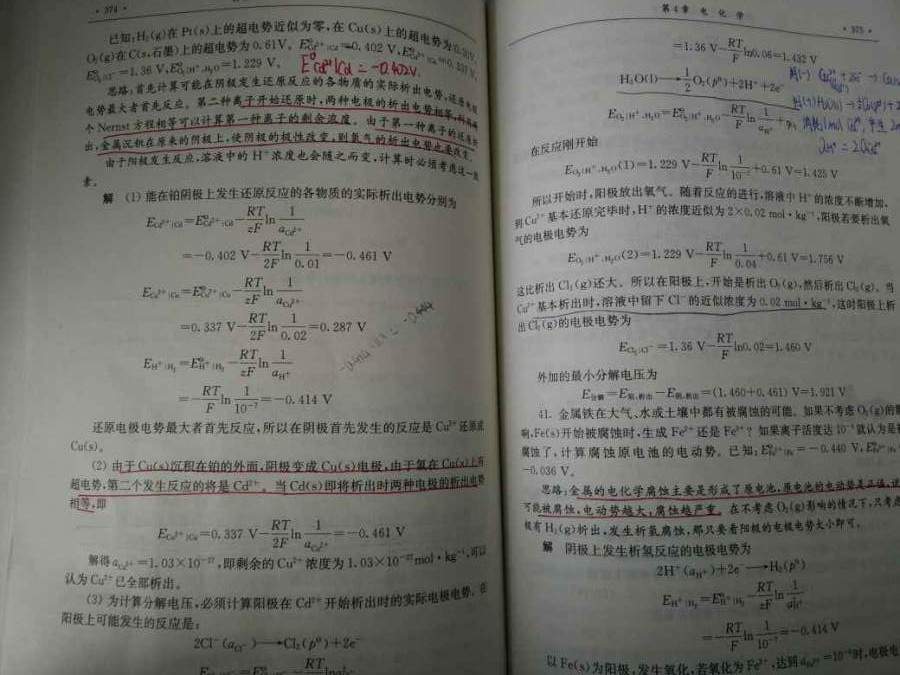 · 374 ·
已知:H₂(g)在Pt(s)上的超电势近似为零,在Cu(s)上的超电势为
O₂(g)在C(s,石墨)上的超电势为0.61V。
=1.36 V, =1.229 V。 E^θ Cd²⁺|Cd = -0.402V.
思路:首先计算可能在阴极发生还原反应的各物质的实际析出电势,还原
电势最大者首先反应。第二种离子开始还原时,两种电极的析出电势相等,
个Nernst方程相等可以计算第一种离子的剩余浓度。由于第一种离子的还原
出,金属沉积在原来的阴极上,使阴极的极性改变,则氢气的析出电势也要改变。
由于阳极发生反应,溶液中的H⁺浓度也会随之而变,计算时必须考虑这一
素。
解 (1) 能在铂阴极上发生还原反应的各物质的实际析出电势分别为
E_{Cd²⁺|Cd}=E^θ_{Cd²⁺|Cd}-RT/zF ln 1/a_{Cd²⁺}
=-0.402 V-RT/2F ln 1/0.01=-0.461 V
E_{Cu²⁺|Cu}=E^θ_{Cu²⁺|Cu}-RT/zF ln 1/a_{Cu²⁺}
=0.337 V-RT/2F ln 1/0.02=0.287 V
E_{H⁺|H₂}=E^θ_{H⁺|H₂}-RT/zF ln 1/a_{H⁺}
=-RT/F ln 1/10⁻⁷=-0.414 V
还原电极电势最大者首先反应,所以在阴极首先发生的反应是Cu²⁺还原成
Cu(s)。
(2) 由于Cu(s)沉积在铂的外面,阴极变成Cu(s)电极,由于氢在Cu(s)上有
超电势,第二个发生反应的将是Cd²⁺。当Cd(s)即将析出时两种电极的析出电势
相等,即
E_{Cu²⁺|Cu}=0.337 V-RT/2F ln 1/a_{Cu²⁺}=-0.461 V
解得a_{Cu²⁺}=1.03×10⁻²⁷,即剩余的Cu²⁺浓度为1.03×10⁻²⁷mol·kg⁻¹,可以
认为Cu²⁺已全部析出。
(3) 为计算分解电压,必须计算阳极在Cd²⁺开始析出时的实际电极电势。在
阳极上可能发生的反应是:
2Cl⁻(a_{Cl⁻})→Cl₂(p^θ)+2e⁻
第4章 电 化 学
· 375 ·
=1.36 V-RT/F ln0.06=1.432 V
H₂O(l)→1/2 O₂(p^θ)+2H⁺+2e⁻
E_{O₂|H⁺,H₂O}=E^θ_{O₂|H⁺,H₂O}-RT/F ln 1/a_{H⁺}+
在反应刚开始
E_{O₂|H⁺,H₂O}(1)=1.229 V-RT/F ln 1/10⁻⁷+0.61 V=1.425 V
所以开始时,阳极放出氧气。随着反应的进行,溶液中H⁺的浓度不断增加,
到Cu²⁺基本还原完毕时,H⁺的浓度近似为2×0.02 mol·kg⁻¹,阳极若要析出氧
气的电极电势为
E_{O₂|H⁺,H₂O}(2)=1.229 V-RT/F ln 1/0.04+0.61 V=1.756 V
这比析出Cl₂(g)还大。所以在阳极上,开始是析出O₂(g),然后析出Cl₂(g)。当
Cu²⁺基本析出时,溶液中留下Cl⁻的近似浓度为0.02 mol·kg⁻¹,这时阳极上析
出Cl₂(g)的电极电势为
E_{Cl₂|Cl⁻}=1.36 V-RT/F ln0.02=1.460 V
外加的最小分解电压为
E分解=E阳,析出-E阴,析出=(1.460+0.461) V=1.921 V
41. 金属铁在大气、水或土壤中都有被腐蚀的可能。如果不考虑O₂(g)的影
响,Fe(s)开始被腐蚀时,生成Fe²⁺还是Fe³⁺?如果离子活度达10⁻⁶就认为是被
腐蚀了,计算腐蚀原电池的电动势。已知:E^θ_{Fe²⁺|Fe}=-0.440 V,
-0.036 V。
思路:金属的电化学腐蚀主要是形成了原电池,原电池的电动势是正值,
可能被腐蚀,电动势越大,腐蚀越严重。在不考虑O₂(g)影响的情况下,只考虑
极有H₂(g)析出,发生析氢腐蚀,那只要看阳极的电极电势大小即可。
解 阴极上发生析氢反应的电极电势为
2H⁺(a_{H⁺})+2e⁻→H₂(p^θ)
E_{H⁺|H₂}=E^θ_{H⁺|H₂}-RT/zF ln 1/a²_{H⁺}
=-RT/F ln 1/10⁻⁷=-0.414 V
以Fe(s)为阳极,发生氧化,若氧化为Fe²⁺,达到a_{Fe²⁺}=10⁻⁶时,电极电